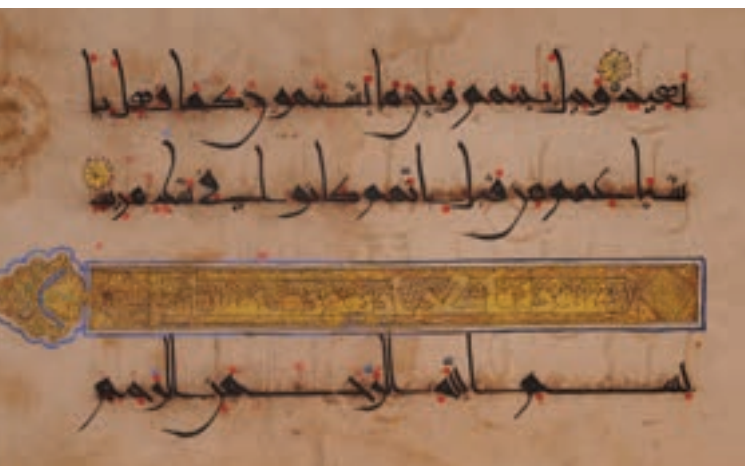 بعيد وحيل بينهم وبين ما يشتهون كما فعل با
شياعهم من قبل انهم كانوا في شك مريب
بسم الله الرحمن الرحيم